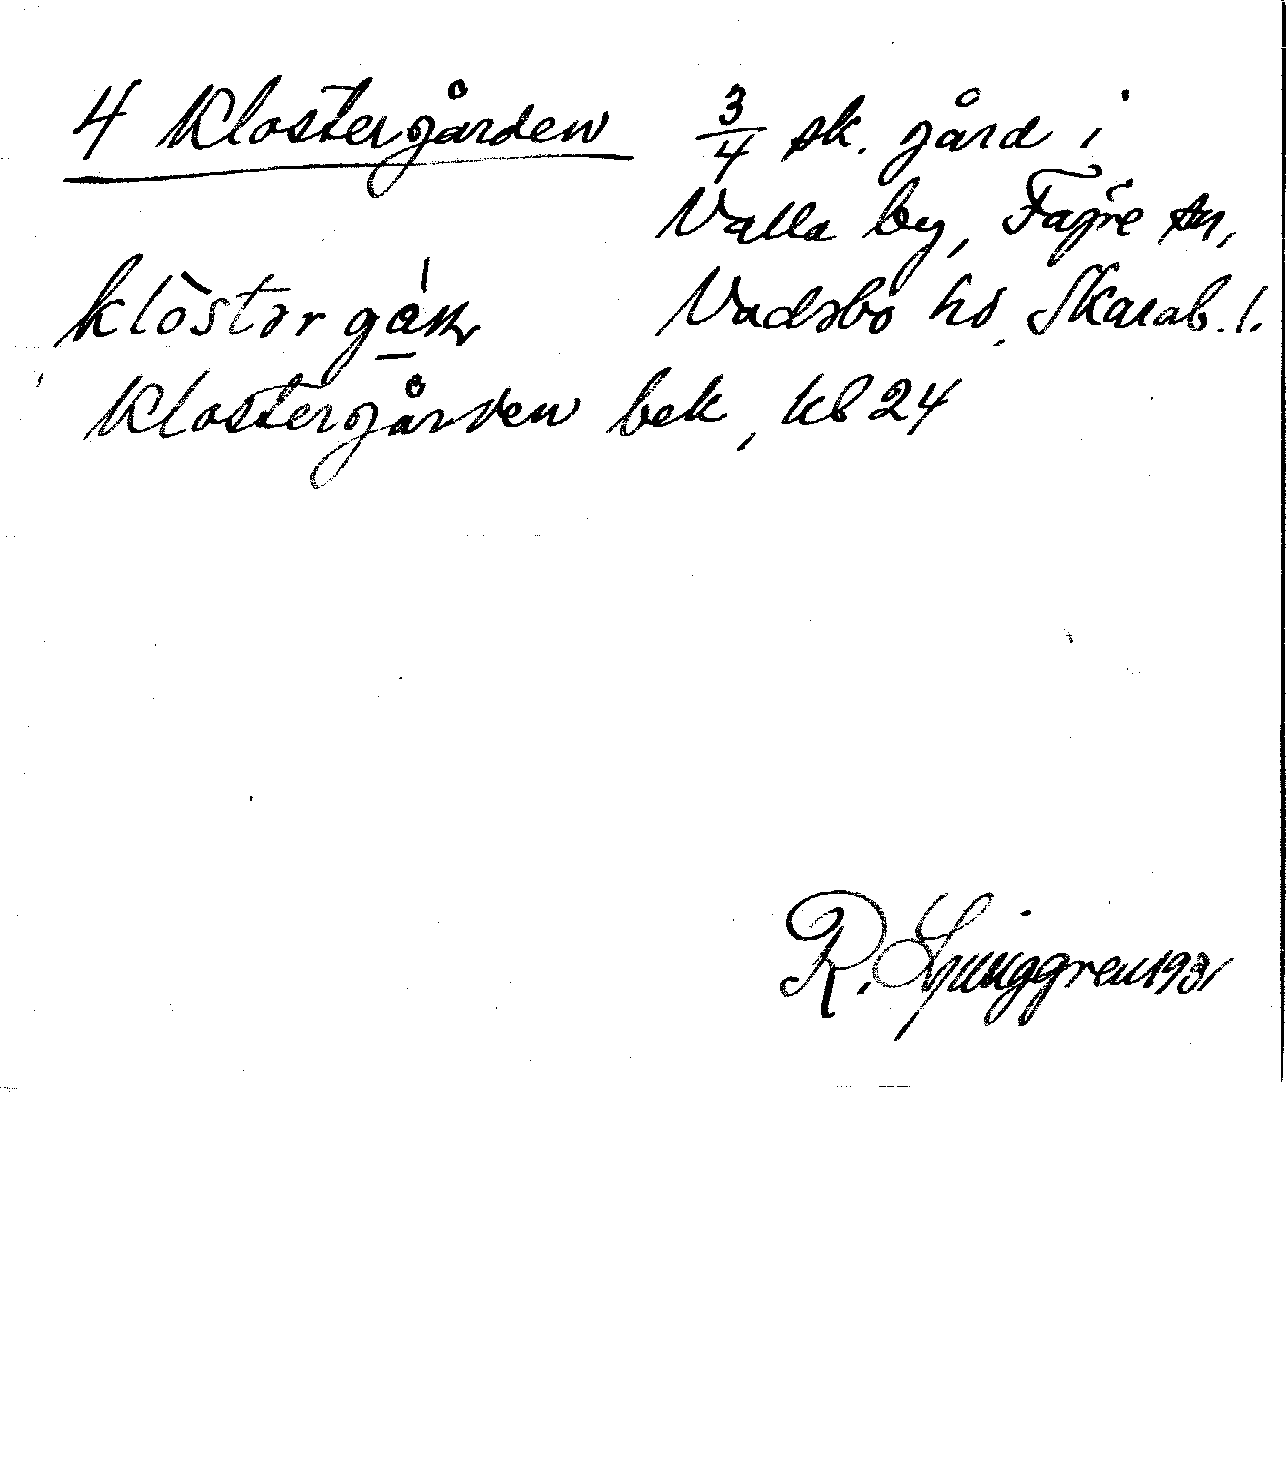 4 Klostergården 3/4 sk. gård i
Valla by, Fägre sn,
Vadsbo hd, Skarab. l.
klòstər
Klostergården bek, kb 24
R. Ljunggren 1931